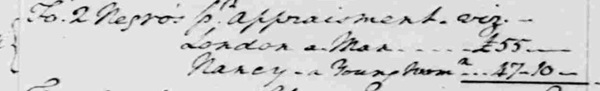 To. 2 Negro's pr. appraisment. viz. -
London a Man ..... £55 -
Nancy - a Young Wom.n ... 47-10 -